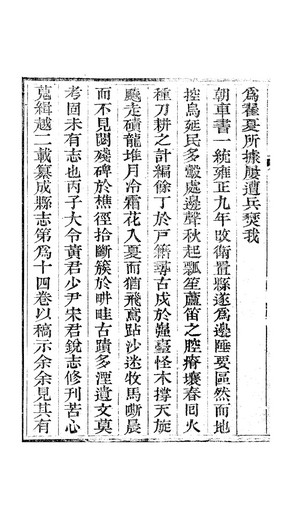 為翟夏所據屢遭兵燹我
朝車書一統雍正九年改衛置縣遂為邊陲要區然而地
控烏延民多鷇處邊聲秋起瓢笙蘆笛之腔瘠壤春回火
種刀耕之計編餘丁於戶籍尋古戍於蠱臺怪木撐天旋
颷走磧龍堆月冷霜花入夏而猶飛鴈點沙迷牧馬嘶晨
而不見閱殘碑於樵徑拾斷簇於畊畦古蹟多湮遺文莫
考固未有志也丙子大令黃君少尹宋君銳志修刊苦心
蒐緝越二載纂成縣志第為十四卷以稿示余余見其有